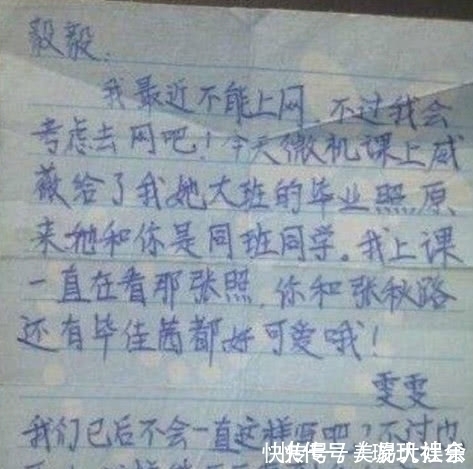 毅毅：
我最近不能上网，不过我会
考虑去网吧！今天微机课上戚
薇给了我她大班的毕业照原
来她和你是同班同学。我上课
一直在看那张照，你和张秋路
还有毕佳茵都好可爱哦！
雯雯
我们已后不会一直这样吧？不过
快传号